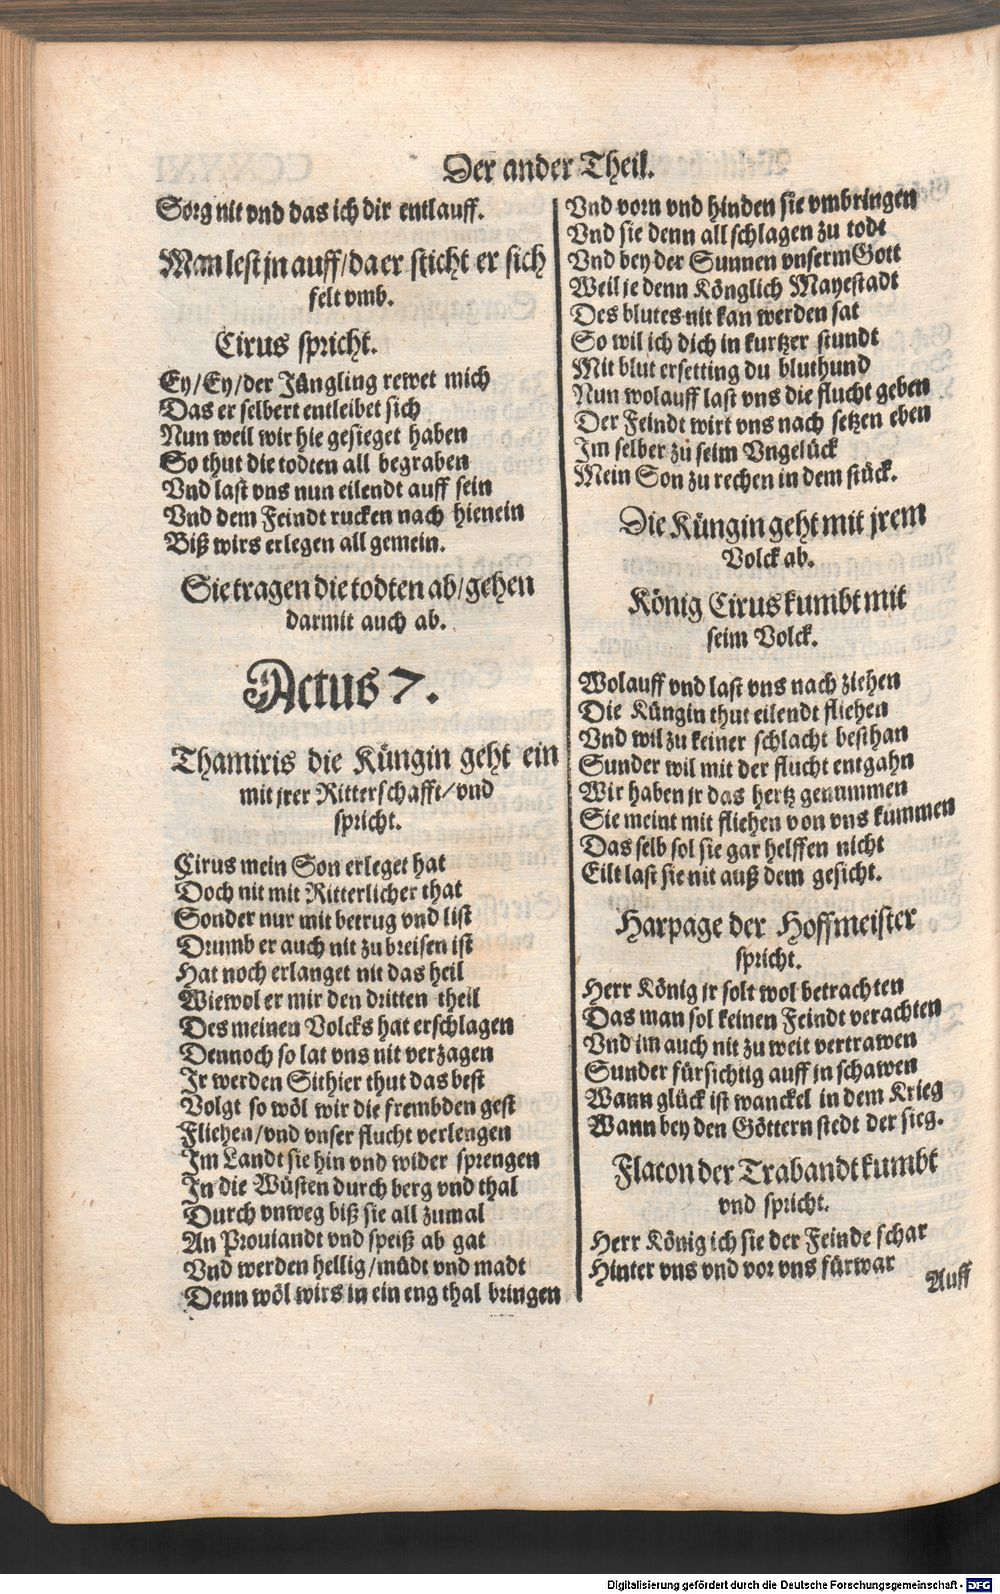 Der ander Theil.
Sorg nit vnd das ich dir entlauff.
Man lest jn auff/da er sticht er sich
felt vmb.
Cirus spricht.
Ey/Ey/der Jüngling rewet mich
Das er selbert entleibet sich
Nun weil wir hie gesieget haben
So thut die todten all begraben
Vnd last vns nun eilendt auff sein
Vnd dem Feindt rucken nach hienein
Biß wirs erlegen all gemein.
Sie tragen die todten ab/gehen
darmit auch ab.
Actus 7.
Thamiris die Küngin geht ein
mit jrer Ritterschafft/vnd
spricht.
Cirus mein Son erleget hat
Doch nit mit Ritterlicher that
Sonder nur mit betrug vnd list
Drumb er auch nit zu breisen ist
Hat noch erlanget nit das heil
Wiewol er mir den dritten theil
Des meinen Volcks hat erschlagen
Dennoch so lat vns nit verzagen
Ir werden Sithier thut das best
Volgt so wöl wir die frembden gest
Fliehen/vnd vnser flucht verlengen
Im Landt sie hin vnd wider sprengen
In die Wüsten durch berg vnd thal
Durch vnweg biß sie all zumal
An Prouiandt vnd speiß ab gat
Vnd werden hellig/müdt vnd madt
Denn wöl wirs in ein eng thal bringen
Vnd vorn vnd hinden sie vmbringen
Vnd sie denn all schlagen zu todt
Vnd bey der Sunnen vnserm Gott
Weil je denn Könglich Mayestadt
Des blutes nit kan werden sat
So wil ich dich in kurtzer stundt
Mit blut ersetting du bluthund
Nun wolauff last vns die flucht geben
Der Feindt wirt vns nach setzen eben
Im selber zu seim Vngelück
Mein Son zu rechen in dem stück.
Die Küngin geht mit jrem
Volck ab.
König Cirus kumbt mit
seim Volck.
Wolauff vnd last vns nach ziehen
Die Küngin thut eilendt fliehen
Vnd wil zu keiner schlacht besthan
Sunder wil mit der flucht entgahn
Wir haben jr das hertz genummen
Sie meint mit fliehen von vns kummen
Das selb sol sie gar helffen nicht
Eilt last sie nit auß dem gesicht.
Harpage der Hoffmeister
spricht.
Herr König jr solt wol betrachten
Das man sol keinen Feindt verachten
Vnd im auch nit zu weit vertrawen
Sunder fürsichtig auff jn schawen
Wann glück ist wanckel in dem Krieg
Wann bey den Göttern stedt der sieg.
Flacon der Trabandt kumbt
vnd spricht.
Herr König ich sie der Feinde schar
Hinter vns vnd vor vns fürwar
Auff
Digitalisierung gefördert durch die Deutsche Forschungsgemeinschaft - DFG